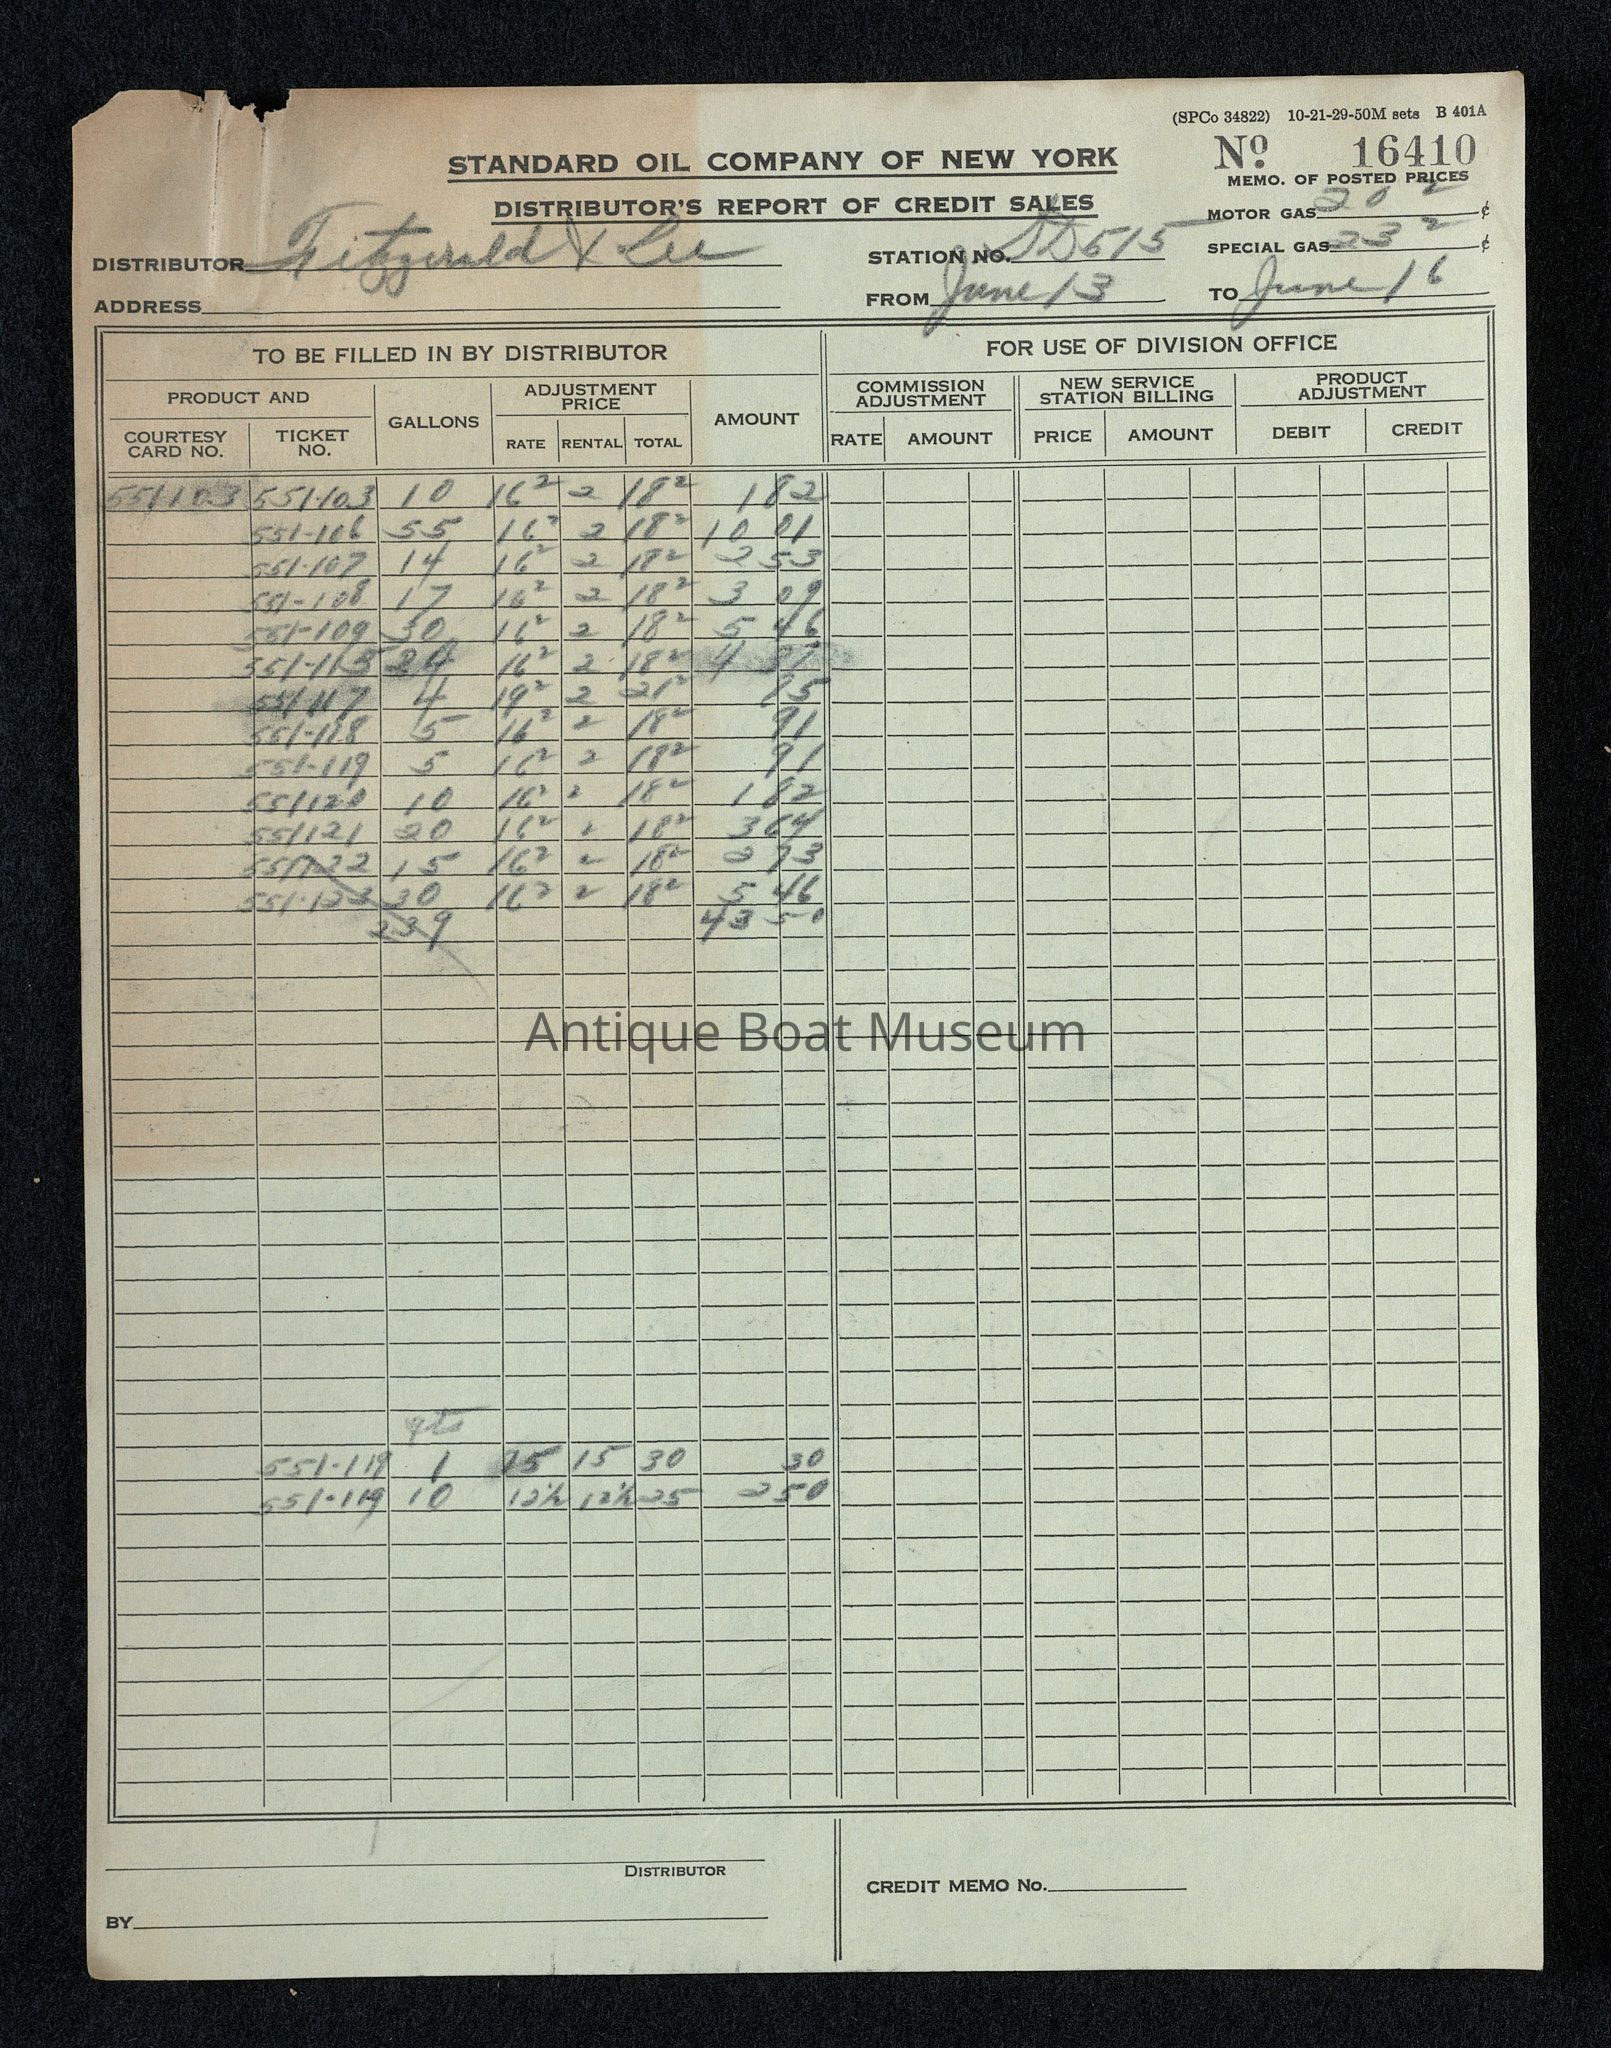 (SPCo 34822) 10-21-29-50M sets B 401A
Nº 16410
STANDARD OIL COMPANY OF NEW YORK
MEMO. OF POSTED PRICES
DISTRIBUTOR'S REPORT OF CREDIT SALES
MOTOR GAS 20 2 ¢
DISTRIBUTOR Fitzgerald & Lee STATION NO. DD515 SPECIAL GAS 23 2 ¢
ADDRESS FROM June 13 TO June 16
TO BE FILLED IN BY DISTRIBUTOR FOR USE OF DIVISION OFFICE
PRODUCT AND GALLONS ADJUSTMENT PRICE AMOUNT COMMISSION ADJUSTMENT NEW SERVICE STATION BILLING PRODUCT ADJUSTMENT
COURTESY CARD NO. TICKET NO. RATE RENTAL TOTAL RATE AMOUNT PRICE AMOUNT DEBIT CREDIT
551103 551-103 10 16² 2 18² 1 82
551-106 55 16² 2 18² 10 01
551-107 14 16² 2 18² 2 53
551-108 17 16² 2 18² 3 09
551-109 30 16² 2 18² 5 46
551-115 24 16² 2 18² 4 37
551-117 4 19² 2 21² 85
551-118 5 16² 2 18² 91
551-119 5 16² 2 18² 91
551120 10 16² 2 18² 1 82
551121 20 16² 2 18² 3 64
551122 15 16² 2 18² 2 73
551-123 30 16² 2 18² 5 46
239 43 50
Antique Boat Museum
qts
551-119 1 15 15 30 30
551-119 10 12½ 12½ 25 2 50
DISTRIBUTOR
CREDIT MEMO No.
BY